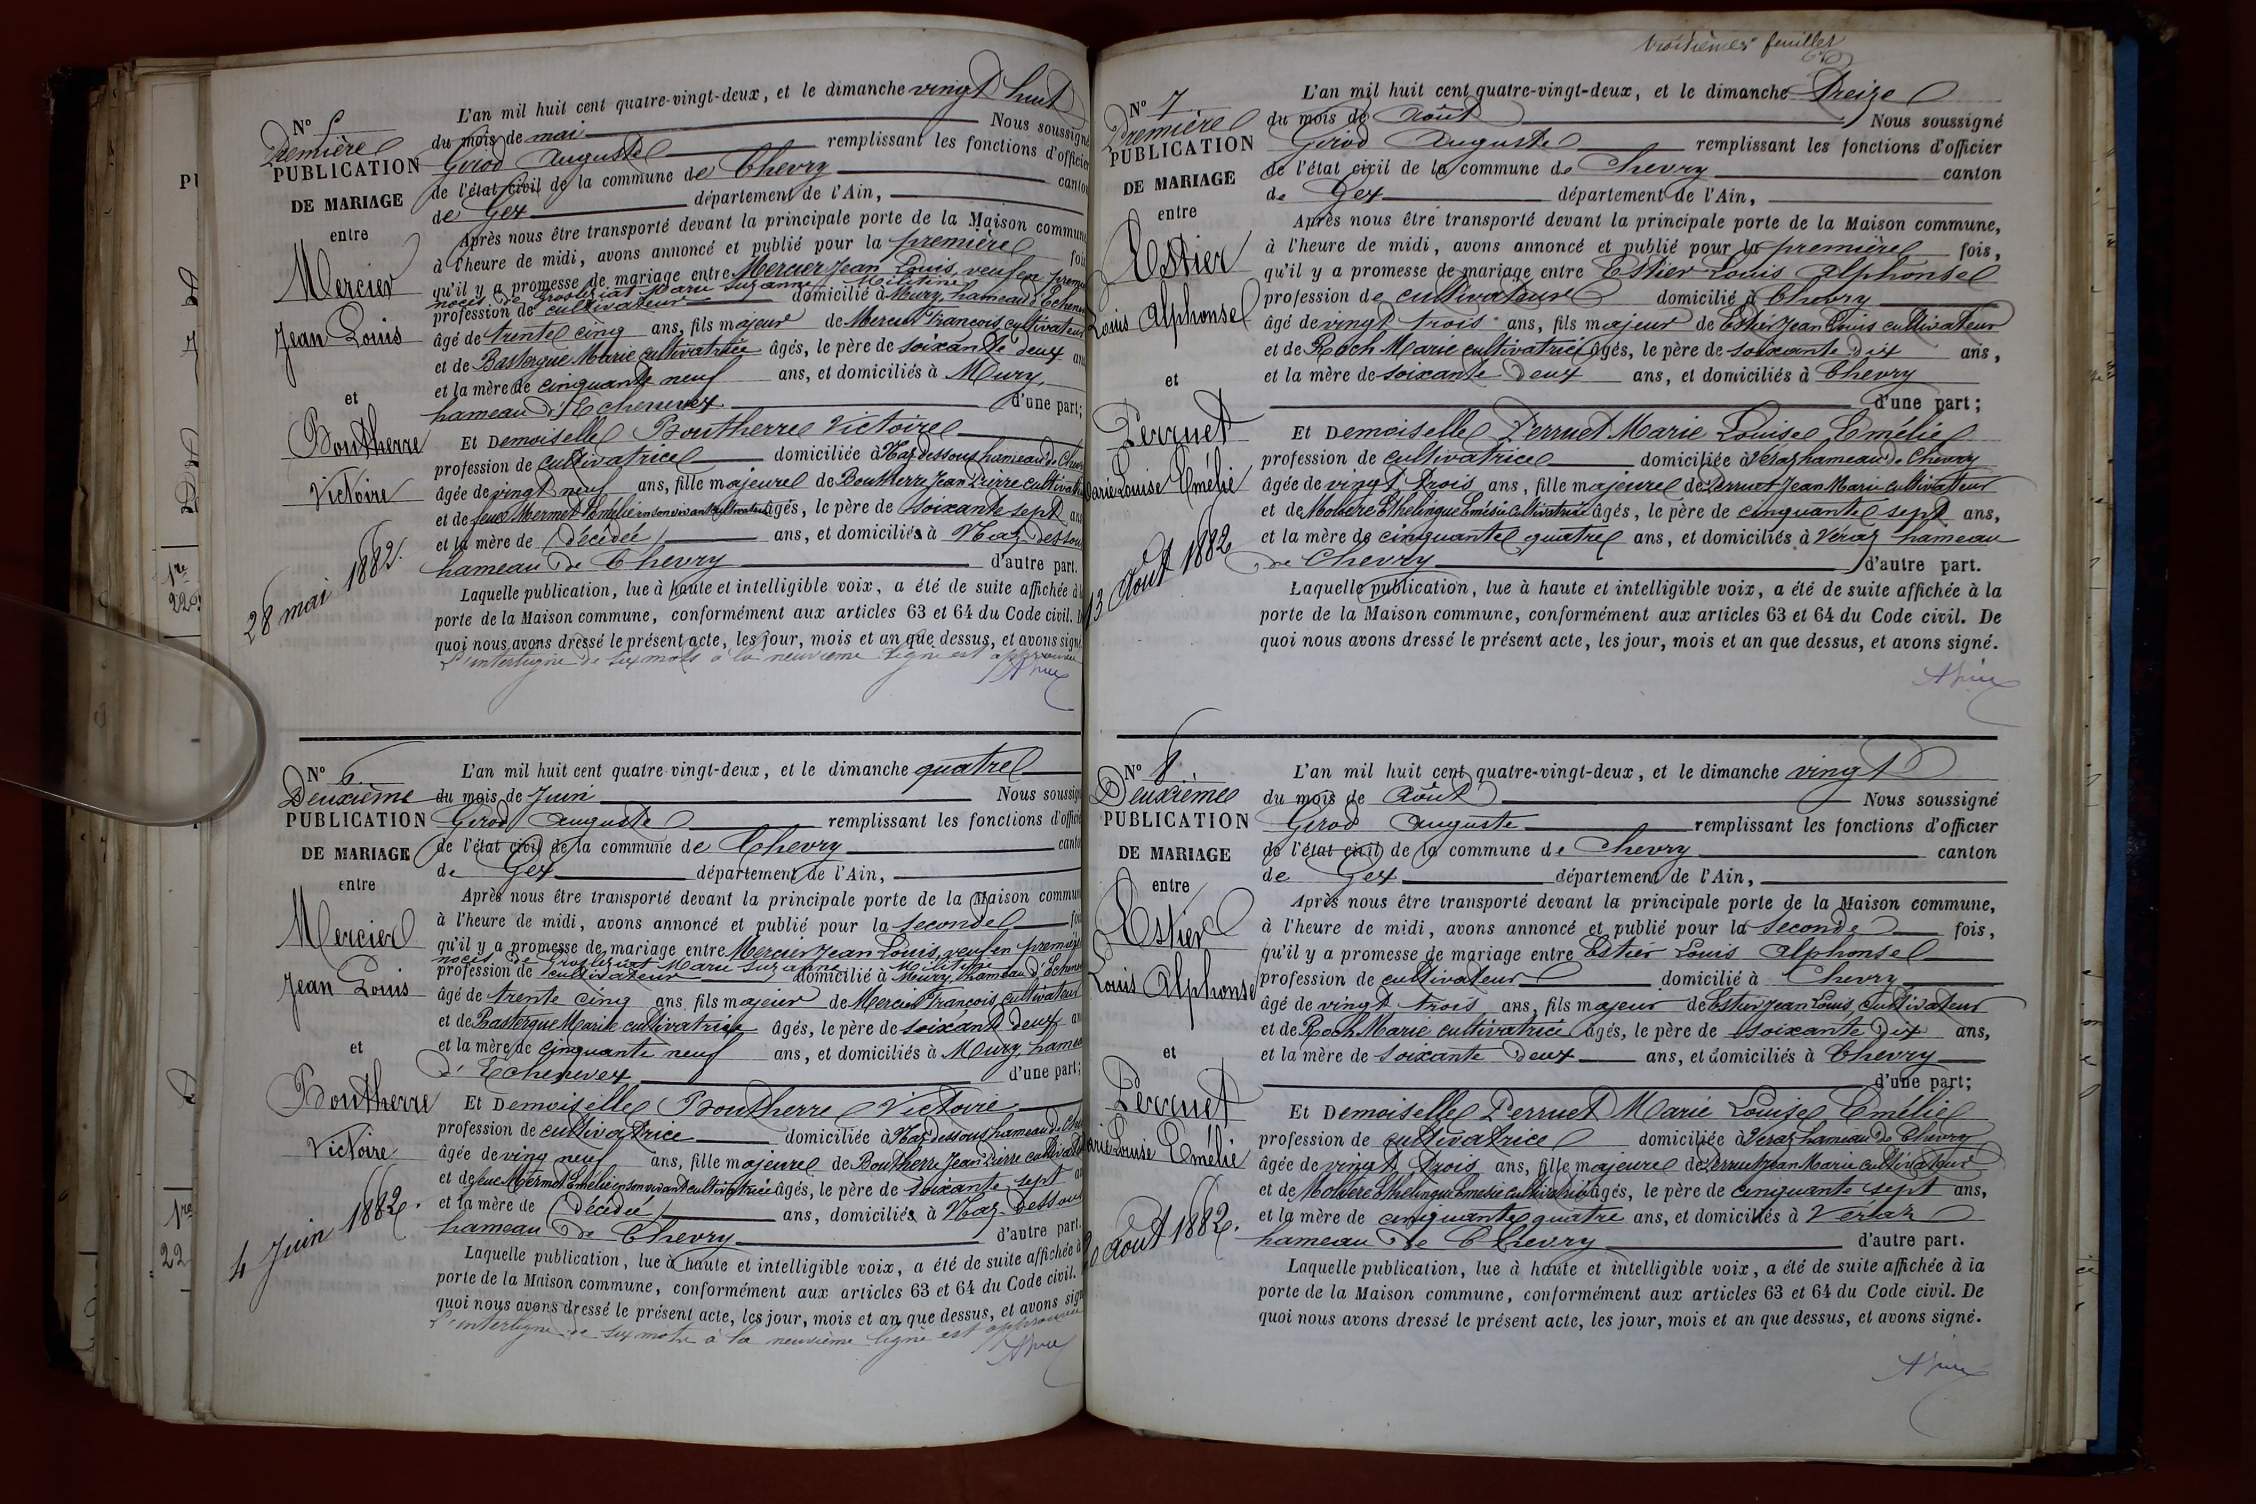 N° 5
Première
PUBLICATION
DE MARIAGE
entre
Mercier
Jean Louis
et
Boutherre
Victoire
28 mai 1882.
L'an mil huit cent quatre-vingt-deux, et le dimanche vingt huit
du mois de mai Nous soussigné
Girod Auguste remplissant les fonctions d'officier
de l'état civil de la commune de Chevry canton
de Gex département de l'Ain,
Après nous être transporté devant la principale porte de la Maison commune
à l'heure de midi, avons annoncé et publié pour la première fois
qu'il y a promesse de mariage entre Mercier Jean Louis, veuf en
noces de Marie Suzanne
profession de cultivateur domicilié à Mury, hameau d'Echenevex
âgé de trente cinq ans, fils majeur de Mercier François cultivateur
et de Bastergue Marie cultivatrice âgés, le père de soixante deux ans
et la mère de cinquante neuf ans, et domiciliés à Mury,
hameau d'Echenevex d'une part;
Et Demoiselle Boutherre Victoire
profession de cultivatrice domiciliée à Naz-dessous hameau de Chevry
âgée de vingt neuf ans, fille majeure de Boutherre Jean Pierre cultivateur
et de feue Mermet Emélie en son vivant cultivatrice âgés, le père de soixante sept ans
et la mère de (décédée) ans, et domiciliés à Naz-dessous
hameau de Chevry d'autre part.
Laquelle publication, lue à haute et intelligible voix, a été de suite affichée à la
porte de la Maison commune, conformément aux articles 63 et 64 du Code civil. De
quoi nous avons dressé le présent acte, les jour, mois et an que dessus, et avons signé
L'interligne de six mots à la neuvième ligne est approuvée
N° 6
Deuxième
PUBLICATION
DE MARIAGE
entre
Mercier
Jean Louis
et
Boutherre
Victoire
4 Juin 1882.
L'an mil huit cent quatre-vingt-deux, et le dimanche quatre
du mois de Juin Nous soussigné
Girod Auguste remplissant les fonctions d'officier
de l'état civil de la commune de Chevry canton
de Gex département de l'Ain,
Après nous être transporté devant la principale porte de la Maison commune
à l'heure de midi, avons annoncé et publié pour la seconde fois
qu'il y a promesse de mariage entre Mercier Jean Louis, veuf en première
noces de Marie Suzanne
profession de cultivateur domicilié à Mury, hameau d'Echenevex
âgé de trente cinq ans, fils majeur de Mercier François cultivateur
et de Bastergue Marie cultivatrice âgés, le père de soixante deux ans
et la mère de cinquante neuf ans, et domiciliés à Mury, hameau
d'Echenevex d'une part;
Et Demoiselle Boutherre Victoire
profession de cultivatrice domiciliée à Naz-dessous hameau de Chevry
âgée de ving neuf ans, fille majeure de Boutherre Jean Pierre cultivateur
et de feue Mermet Emélie en son vivant cultivatrice âgés, le père de soixante sept ans
et la mère de (décédée) ans, domiciliés à Naz-dessous
hameau de Chevry d'autre part.
Laquelle publication, lue à haute et intelligible voix, a été de suite affichée à
porte de la Maison commune, conformément aux articles 63 et 64 du Code civil.
quoi nous avons dressé le présent acte, les jour, mois et an que dessus, et avons signé
L'interligne de six mots à la neuvième ligne est approuvée
troisième feuillet
N° 7
Première
PUBLICATION
DE MARIAGE
entre
Estier
Louis Alphonse
et
Perruet
Marie Louise Emélie
13 Août 1882
L'an mil huit cent quatre-vingt-deux, et le dimanche Treize
du mois de Août Nous soussigné
Girod Auguste remplissant les fonctions d'officier
de l'état civil de la commune de Chevry canton
de Gex département de l'Ain,
Après nous être transporté devant la principale porte de la Maison commune,
à l'heure de midi, avons annoncé et publié pour la première fois,
qu'il y a promesse de mariage entre Estier Louis Alphonse
profession de cultivateur domicilié à Chevry
âgé de vingt trois ans, fils majeur de Estier Jean Louis cultivateur
et de Roch Marie cultivatrice âgés, le père de soixante dix ans,
et la mère de soixante deux ans, et domiciliés à Chevry
d'une part;
Et Demoiselle Perruet Marie Louise Emélie
profession de cultivatrice domiciliée à Véraz hameau de Chevry
âgée de vingt trois ans, fille majeure de Perruet Jean Marie cultivateur
et de cultivatrice âgés, le père de cinquante sept ans,
et la mère de cinquante quatre ans, et domiciliés à Véraz hameau
de Chevry d'autre part.
Laquelle publication, lue à haute et intelligible voix, a été de suite affichée à la
porte de la Maison commune, conformément aux articles 63 et 64 du Code civil. De
quoi nous avons dressé le présent acte, les jour, mois et an que dessus, et avons signé.
N° 8
Deuxième
PUBLICATION
DE MARIAGE
entre
Estier
Louis Alphonse
et
Perruet
Marie Louise Emélie
20 Août 1882.
L'an mil huit cent quatre-vingt-deux, et le dimanche vingt
du mois de Août Nous soussigné
Girod Auguste remplissant les fonctions d'officier
de l'état civil de la commune de Chevry canton
de Gex département de l'Ain,
Après nous être transporté devant la principale porte de la Maison commune,
à l'heure de midi, avons annoncé et publié pour la seconde fois,
qu'il y a promesse de mariage entre Estier Louis Alphonse
profession de cultivateur domicilié à Chevry
âgé de vingt trois ans, fils majeur de Estier Jean Louis cultivateur
et de Roch Marie cultivatrice âgés, le père de soixante dix ans,
et la mère de soixante deux ans, et domiciliés à Chevry
d'une part;
Et Demoiselle Perruet Marie Louise Emélie
profession de cultivatrice domiciliée à Veraz hameau de Chevry
âgée de vingt trois ans, fille majeure de Perruet Jean Marie cultivateur
et de cultivatrice âgés, le père de cinquante sept ans,
et la mère de cinquante quatre ans, et domiciliés à Veraz
hameau de Chevry d'autre part.
Laquelle publication, lue à haute et intelligible voix, a été de suite affichée à la
porte de la Maison commune, conformément aux articles 63 et 64 du Code civil. De
quoi nous avons dressé le présent acte, les jour, mois et an que dessus, et avons signé.